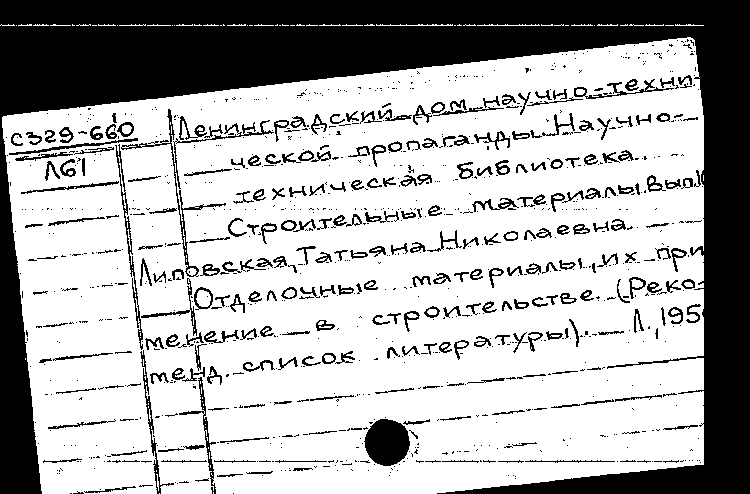 С329-660
Л61
Ленинградский дом научно-техни-
ческой пропаганды. Научно-
техническая библиотека.
Строительные материалы. Вып.
Липовская, Татьяна Николаевна
Отделочные материалы, их при
менение в строительстве. (Реко-
менд. список литературы). Л., 195